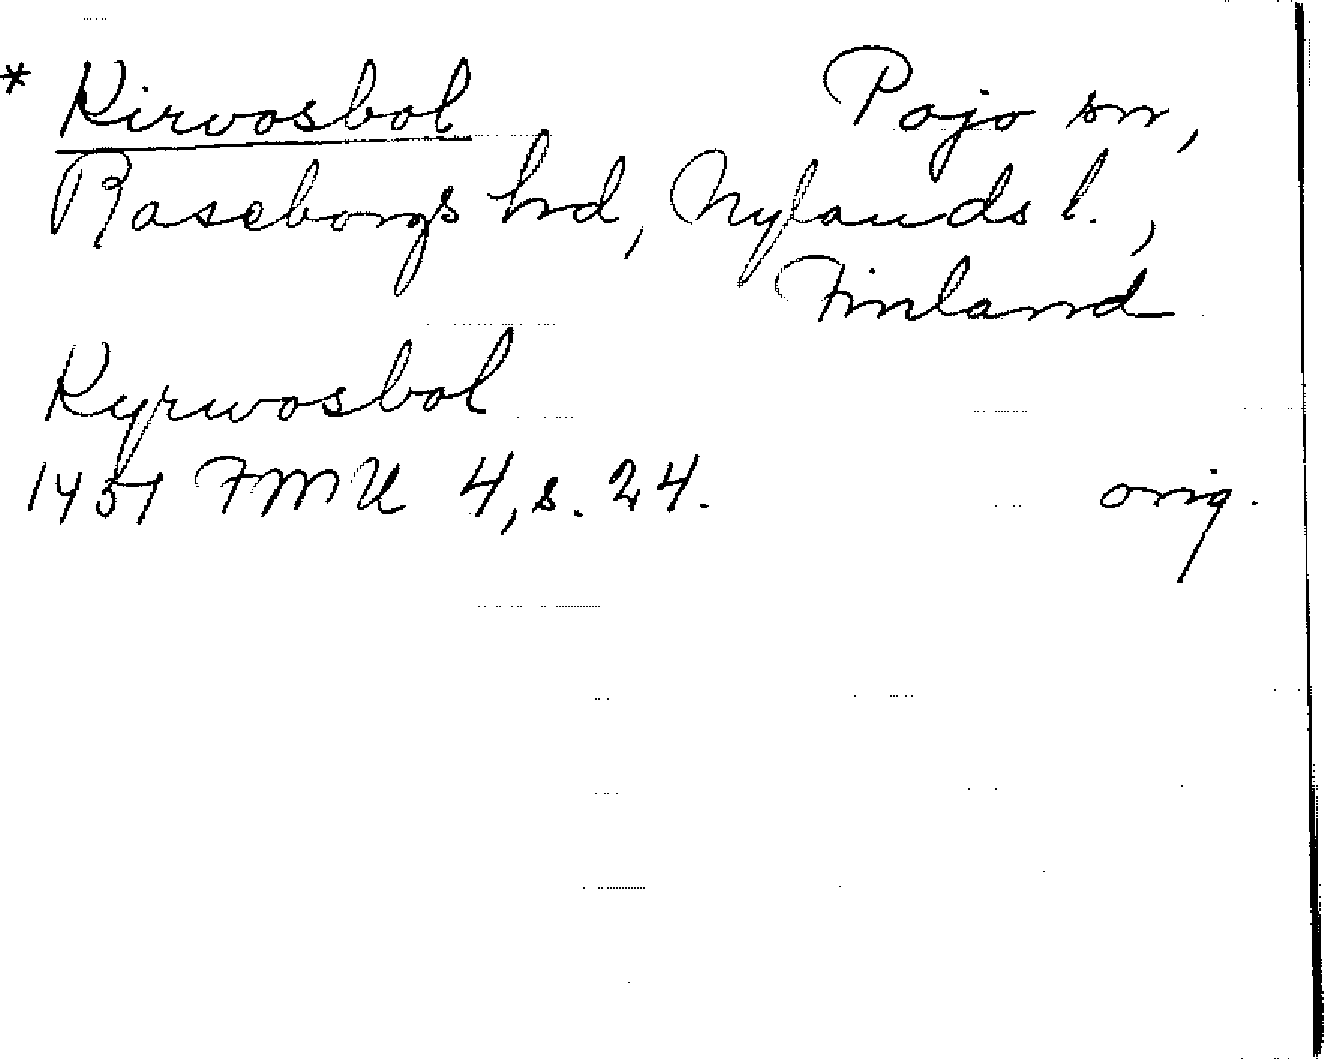 * Kirvosbol Pojo sn,
Raseborgs hrd, Nylands l.,
Finland
Kyrwosbol
1451 FMU 4, s. 24. orig.